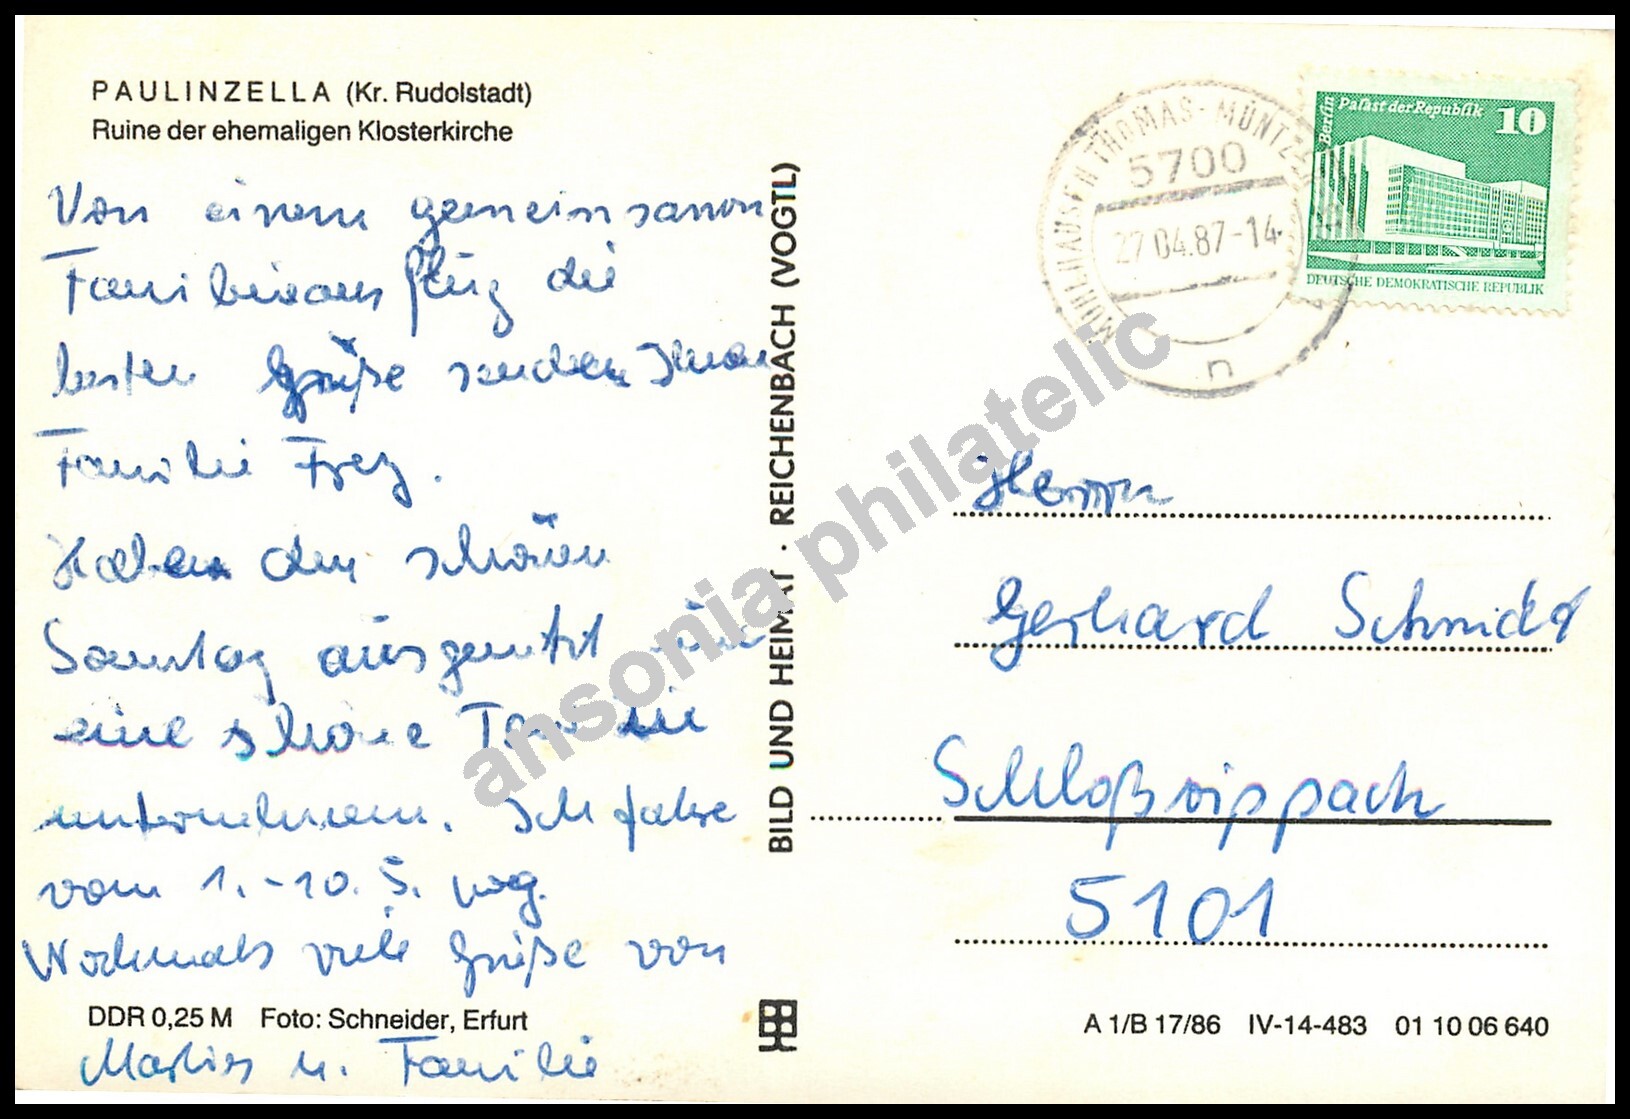 PAULINZELLA (Kr. Rudolstadt)
Ruine der ehemaligen Klosterkirche
Von einem gemeinsamen
Familienausflug die
besten Grüße senden Ihnen
Familie Frey.
Haben den schönen
Sonntag ausgenutzt um
eine schöne Tour zu
unternehmen. Ich fahre
vom 1.-10.5. weg.
Nochmals viele Grüße von
DDR 0,25 M Foto: Schneider, Erfurt
Marlies u. Familie
BILD UND HEIMAT · REICHENBACH (VOGTL)
MÜHLHAUSEN THOMAS-MÜNTZER
5700
27.04.87-14
n
Berlin Palast der Republik 10
DEUTSCHE DEMOKRATISCHE REPUBLIK
Herrn
Gerhard Schmidt
Schloßvippach
5101
A 1/B 17/86 IV-14-483 01 10 06 640
ansonia philatelic